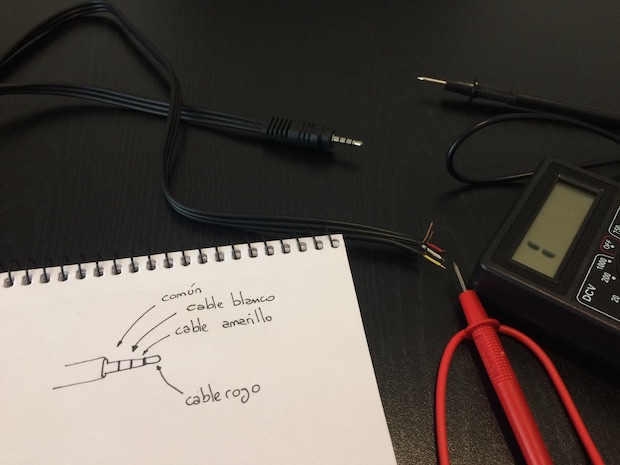 común
cable blanco
cable amarillo
cable rojo
OFF
750
1000
200
20
DCV